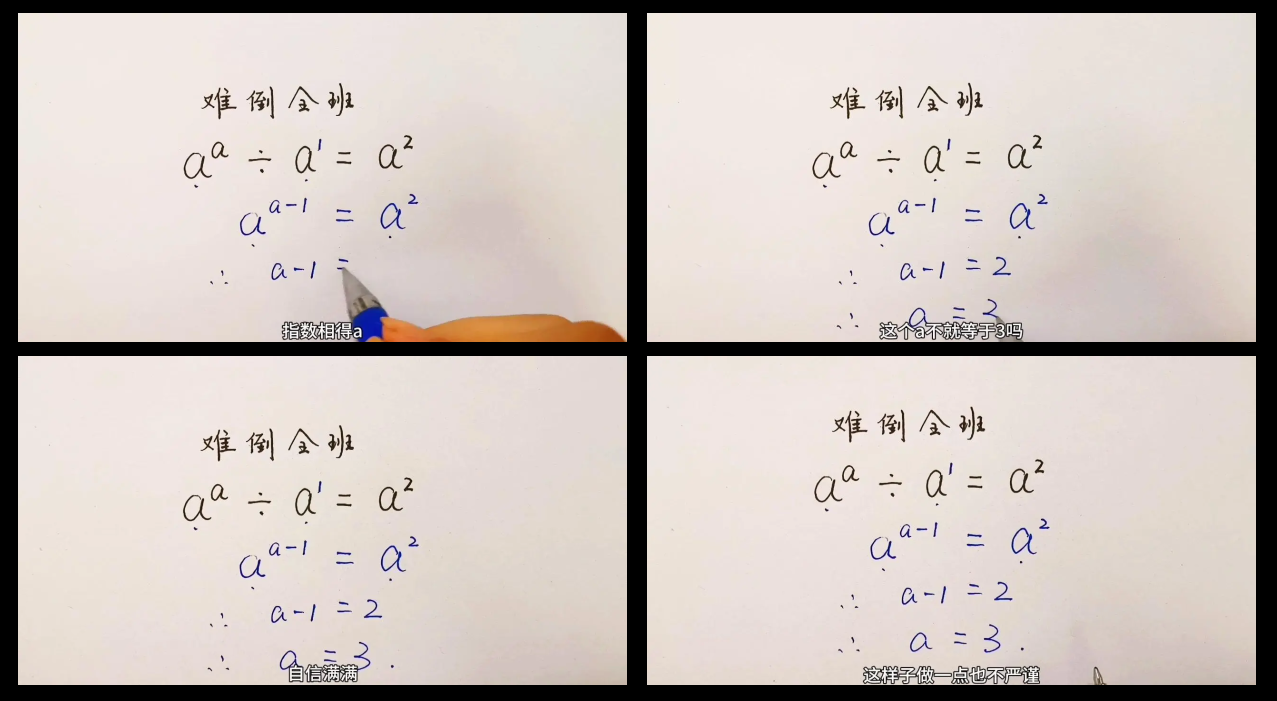 难倒全班
aᵃ ÷ a¹ = a²
aᵃ⁻¹ = a²
∴ a-1 =
指数相得a
难倒全班
aᵃ ÷ a¹ = a²
aᵃ⁻¹ = a²
∴ a-1 = 2
∴ a = 3
这个a不就等于3吗
难倒全班
aᵃ ÷ a¹ = a²
aᵃ⁻¹ = a²
∴ a-1 = 2
∴ a = 3.
自信满满
难倒全班
aᵃ ÷ a¹ = a²
aᵃ⁻¹ = a²
∴ a-1 = 2
∴ a = 3.
这样子做一点也不严谨